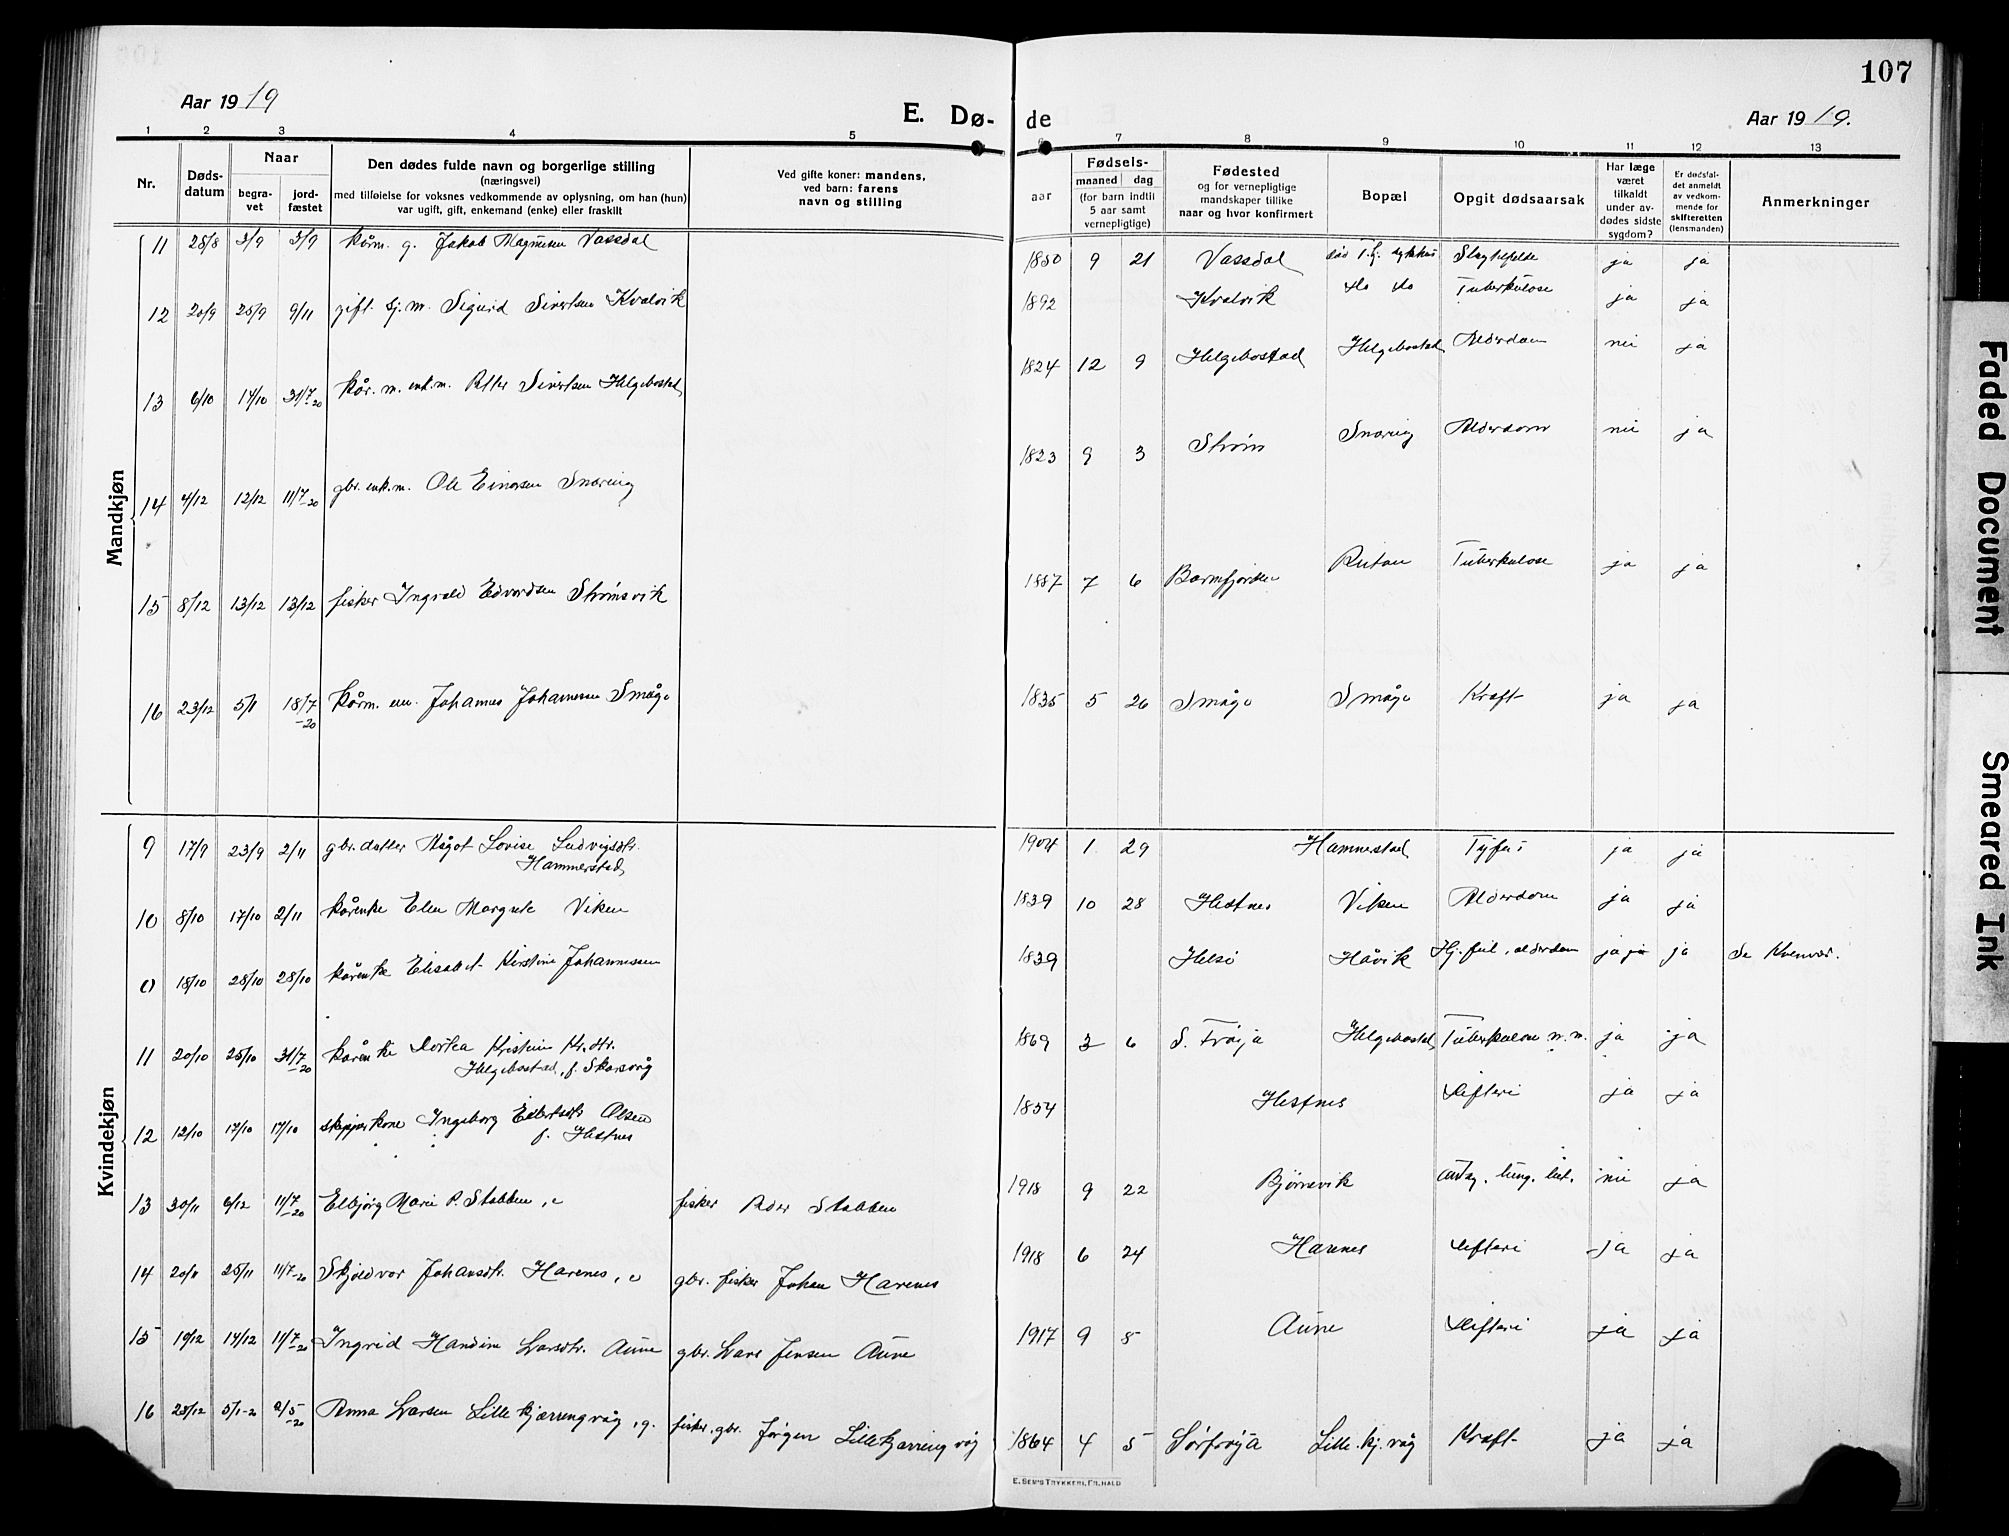 107
Aar 1919
E. Dø-
de
Aar 1919.
1 2 3 4 5 6 7 8 9 10 11 12 13
Nr.
Døds-
datum
Naar
begra-
vet
jord-
fæstet
Den dødes fulde navn og borgerlige stilling
(næringsvei)
med tilføielse for voksnes vedkommende av oplysning, om han (hun)
var ugift, gift, enkemand (enke) eller fraskilt
Ved gifte koner: mandens,
ved barn: farens
navn og stilling
aar
Fødsels-
maaned dag
(for barn indtil
5 aar samt
vernepligtige)
Fødested
og for vernepligtige
mandskaper tillike
naar og hvor konfirmert
Bopæl
Opgit dødsaarsak
Har læge
været
tilkaldt
under av-
dødes sidste
sygdom?
Er dødsfal-
det anmeldt
av vedkom-
mende for
skifteretten
(lensmanden)
Anmerkninger
Mandkjøn
11 28/8 3/9 3/9 kårm. g. Jakob Magnusen Vassdal 1850 9 21 Vassdal ja ja
12 20/9 25/9 9/11 gift. sj.m. Sigurd Sivertsen Kvalvik 1892 Kvalvik do do Tuberkulose ja ja
13 6/10 14/10 31/7-20 kår.m. enk.m. Petter Sivertsen Helgebostad 1824 12 9 Helgebostad Helgebostad Alderdom nei ja
14 4/12 12/12 11/7-20 gbr. enk.m. Ole Einarsen Snaring 1823 9 3 Strøm Snaring Alderdom nei ja
15 8/12 13/12 13/12 fisker Ingvald Edvardsen Strømsvik 1887 7 6 Barmfjorden Tuberkulose ja ja
16 23/12 5/1 18/7-20 kårm. em. Johannes Johannesen Småge 1835 5 26 Småge Småge Kræft ja ja
Kvindekjøn
9 17/9 23/9 2/11 gbr. datter Dågot Lovise Ludvigsdtr.
Hammerstad 1904 1 29 Hammerstad Tyfus ja ja
10 8/10 17/10 2/11 kårenke Elen Margrete Viken 1839 10 28 Hestnes Viken Alderdom ja ja
0 18/10 28/10 28/10 kårenke Elisabet Kirstine Johannessen 1839 Helsø Håvik Hj.feil, alderdom ja ja Se Kvenvær.
11 20/10 25/10 31/7-20 kårenke Dortea Kristine Kr.dtr.
Helgebostad, f. Skarsvåg 1869 3 6 S. Frøija Helgebostad Tuberkulose m.m. ja ja
12 12/10 17/10 17/10 skipperkone Ingeborg Eilertsdtr Olsen
f. Hestnes 1854 Hestnes Difteri ja ja
13 30/11 6/12 11/7-20 Elbjørg Marie P. Stabben, fisker Peder Stabben 1918 9 22 Bjørnevik nei ja
14 20/11 25/11 11/7-20 Skjoldvor Johansdtr. Havnes, gbr. fisker Johan Havnes 1918 6 24 Havnes Difteri ja ja
15 10/12 14/12 11/7-20 Ingrid Handine Larsdtr. Aune gbr. Lars Jensen Aune 1917 9 8 Aune Difteri ja ja
16 28/12 5/1-20 2/5-20 Anna Larsen Lillekjærringvåg, g. fisker, gbr. Jørgen Lillekjærringvåg 1864 4 5 Sørfrøya Lille.kj.våg Kræft ja ja
E. SEM'S TRYKKERI, FR.HALD
Faded Document
Smeared Ink